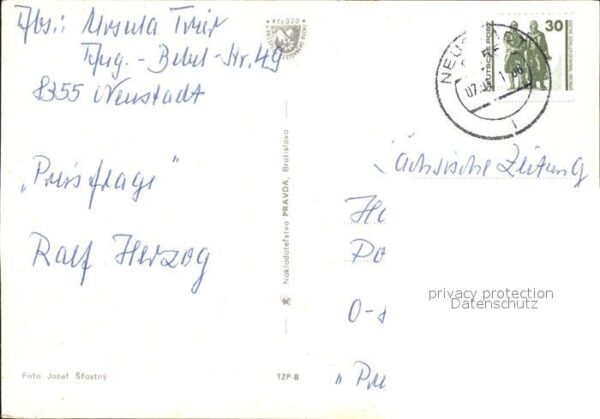 Abs.: Ursula Trier
Aug.-Bebel-Str. 49
8355 Neustadt
"Preisfrage"
Ralf Herzog
Kčs 0,20
Nakladateľstvo PRAVDA, Bratislava
Foto Jozef Šťastný
TZP-B
DEUTSCHE POST
30
NEUSTADT
Sächsische Zeitung
H
Po
O-
"Pr
privacy protection
Datenschutz